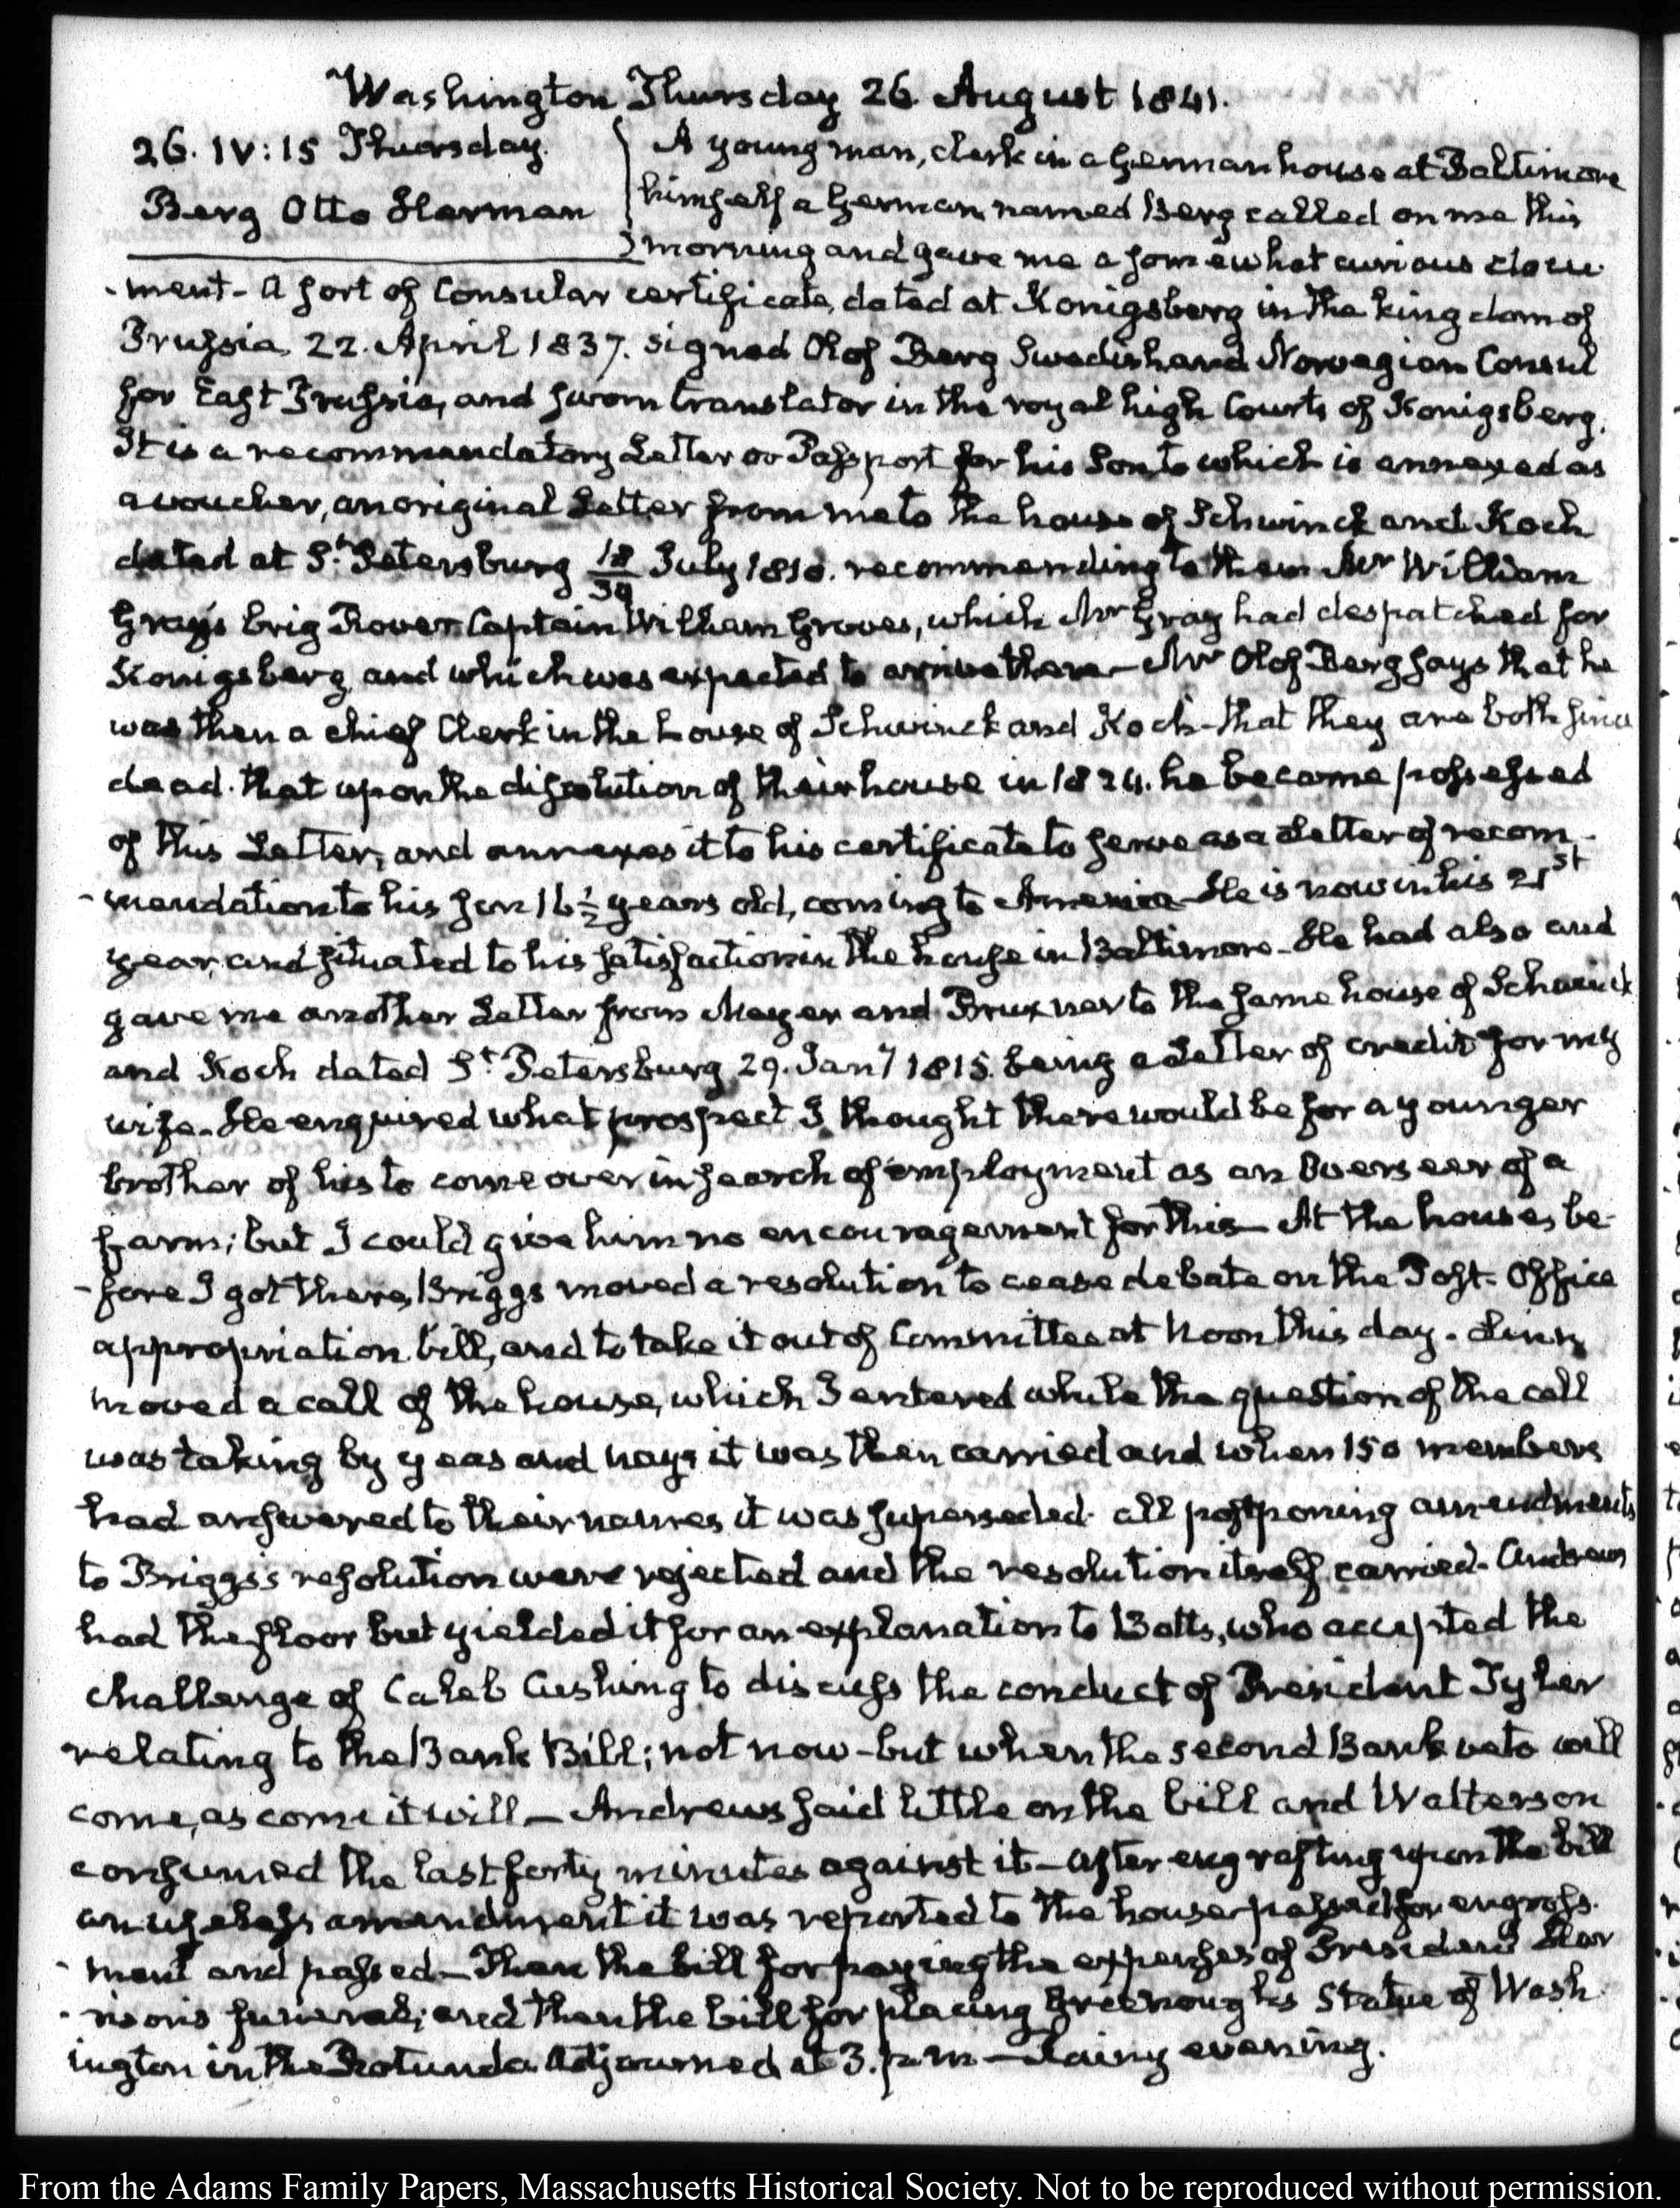 Washington Thursday 26. August 1841.
26. IV:15 Thursday.
Berg Otto Herman
A young man, clerk in a German house at Baltimore
himself a German named Berg called on me this
morning and gave me a somewhat curious docu
-ment- A sort of Consular certificate, dated at Konigsberg in the kingdom of
Prussia, 22. April 1837. signed Olof Berg Swedish and Norwegian Consul
for East Prussia, and sworn translator in the royal high Courts of Konigsberg.
It is a recommendatory Letter or Passport for his Son to which is annexed as
a voucher, an original Letter from me to the house of Schwinck and Koch
dated at St. Petersburg 18/30 July 1810. recommending to them Mr William
Gray's brig Rover Captain William Groves, which Mr Gray had despatched for
Konigsberg, and which was expected to arrive there- Mr Olof Berg says that he
was then a chief Clerk in the house of Schwinck and Koch- that they are both since
dead. that upon the dissolution of their house in 1824. he became possessed
of this Letter, and annexes it to his certificate to serve as a Letter of recom-
-mendation to his son 16½ years old, coming to America- He is now in his 21st
year, and situated to his satisfaction in the house in Baltimore- He had also and
gave me another Letter from Meyer and Bruxner to the same house of Schwinck
and Koch dated St. Petersburg 29. Jany 1815. being a Letter of credit for my
wife- He enquired what prospect I thought there would be for a younger
brother of his to come over in search of employment as an Overseer of a
farm; but I could give him no encouragement for this- At the house, be-
-fore I got there, Briggs moved a resolution to cease debate on the Post-Office
appropriation bill, and to take it out of Committee at Noon this day. Linn
moved a call of the house, which I entered while the question of the call
was taking by yeas and nays it was then carried and when 150 members
had answered to their names it was superseded. all postponing amendments
to Briggs's resolution were rejected and the resolution itself carried- Andrews
had the floor but yielded it for an explanation to Botts, who accepted the
challenge of Caleb Cushing to discuss the conduct of President Tyler
relating to the Bank Bill; not now- but when the second Bank veto will
come, as come it will- Andrews said little on the bill and Watterson
consumed the last forty minutes against it- after engrafting upon the bill
an useless amendment it was reported to the house passed for engross-
-ment and passed- Then the bill for paying the expenses of President Har
-rison's funeral; and then the bill for placing Greenough's Statue of Wash
-ington in the Rotunda. Adjourned at 3. p.m- Rainy evening.
From the Adams Family Papers, Massachusetts Historical Society. Not to be reproduced without permission.